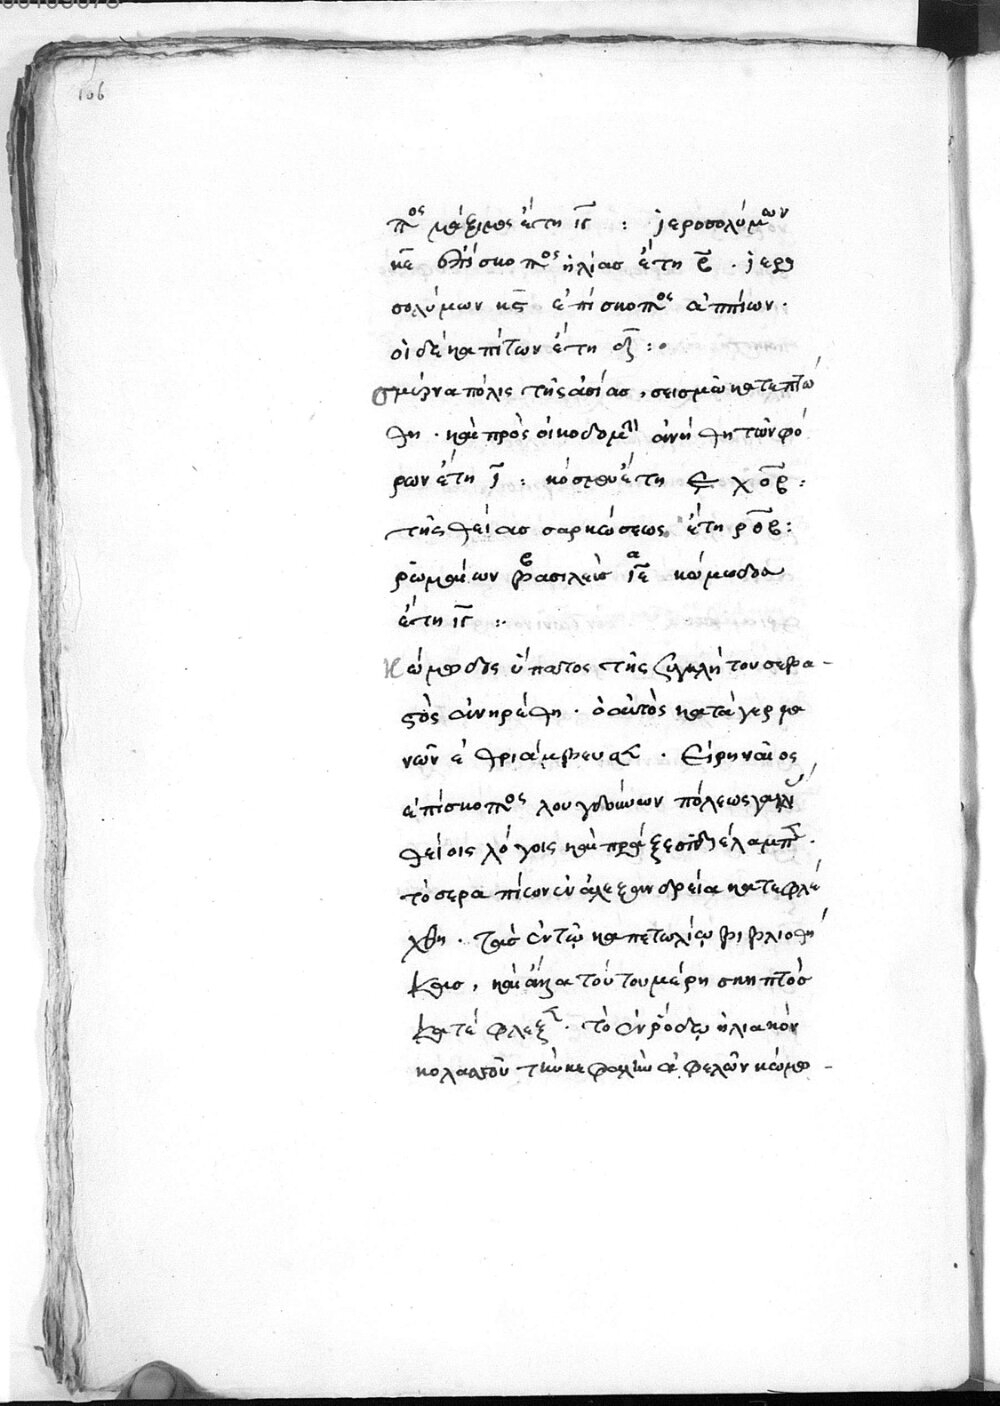 106
πος μάξιμος ἔτη ιγ : ἱεροσολύμων
κε ἐπίσκοπος ἠλίας ἔτη β . ἱερο
σολύμων κϛ ἐπίσκοπος ἀππίων .
οἱ δέκα πίπτων ἔτη οζ :
σμύρνα πόλις τῆς ἀσίας , σεισμῶ κατεπτώ
θη . καὶ πρὸς οἰκοδομὴν ἀνήθη τῶν φό
ρων ἔτη ι : κόσμου ἔτη ͵ε χοβ :
τῆς θείας σαρκώσεως ἔτη ροβ :
ῥωμαίων βασιλεὺς ιε κώμοδος
ἔτη ιγ :
κώμοδος ὕπατος τῆς συγκλήτου σεβα-
στὸς ἀνηρέθη . ὁ αὐτὸς κατὰ γερμα
νῶν ἐθριάμβευσε . Εἰρηναῖος
ἐπίσκοπος λουγδούνων πόλεως γαλλ
θείοις λόγοις καὶ πράξεσι διέλαμπε .
τὸ σεραπίων ἐν ἀλεξανδρεία κατεφλέ
χθη . τὰς ἐν τῷ καπετωλίῳ βιβλιοθή
κας , καὶ ἄλλα τούτου μέρη σκηπτὸς
κατέφλεξε . τὸ ἐν ῥόδῳ ἡλιακὸν
κολασσοῦ τὴν κεφαλὴν ἀφελῶν κώμο-